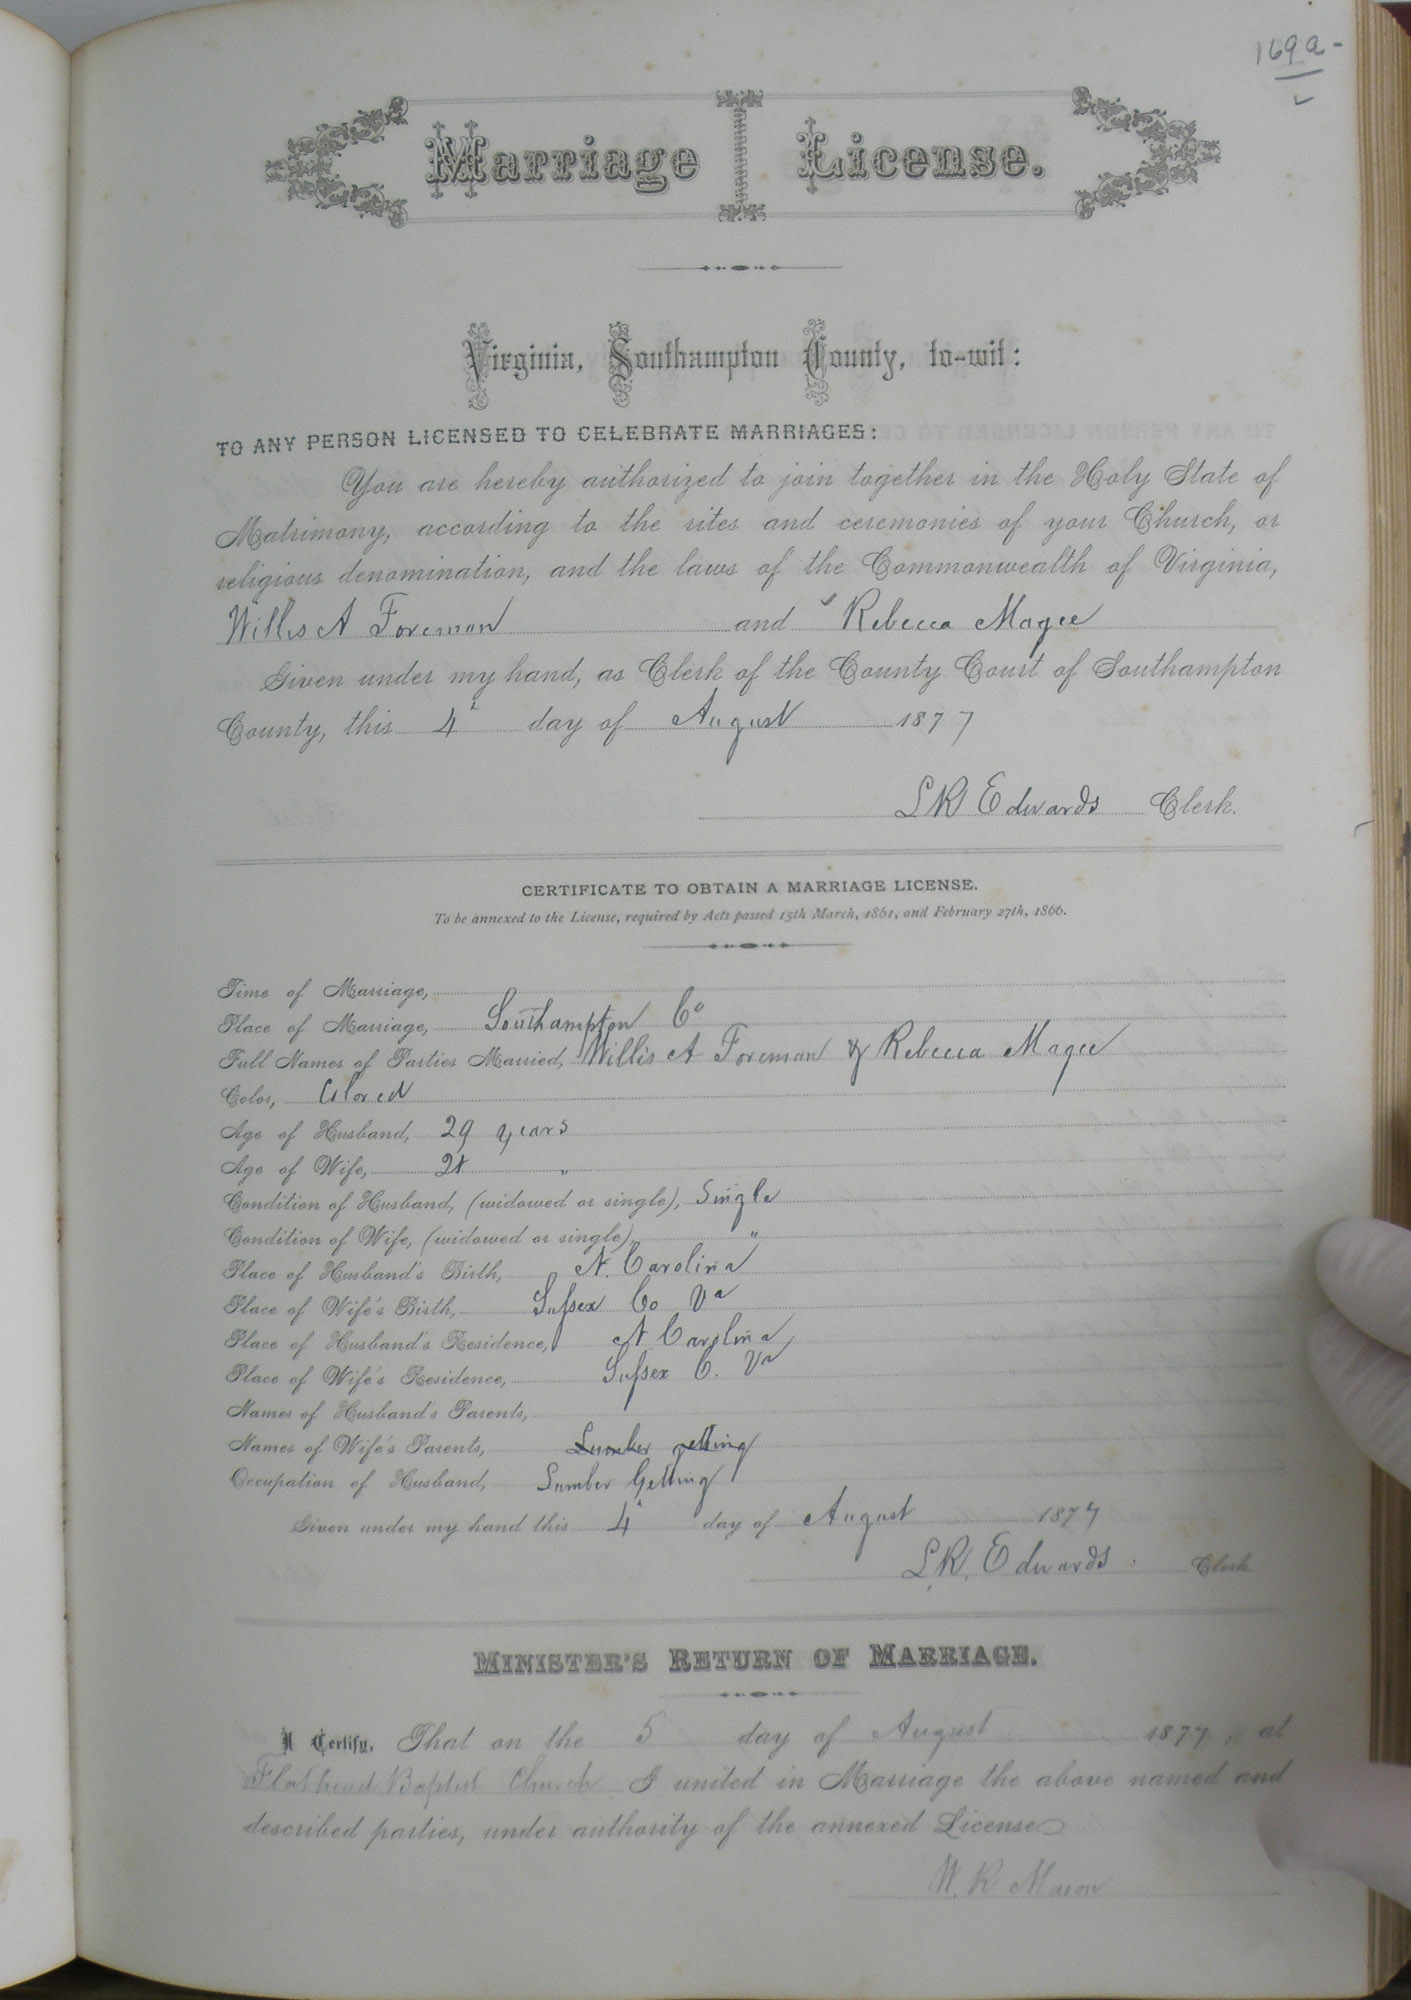 169a-
Marriage License.
Virginia, Southampton County, to-wit:
TO ANY PERSON LICENSED TO CELEBRATE MARRIAGES:
You are hereby authorized to join together in the Holy State of
Matrimony, according to the rites and ceremonies of your Church, or
religious denomination, and the laws of the Commonwealth of Virginia,
Willis A Foreman and Rebecca Magee
Given under my hand, as Clerk of the County Court of Southampton
County, this 4" day of August 1877
L R Edwards Clerk.
CERTIFICATE TO OBTAIN A MARRIAGE LICENSE.
To be annexed to the License, required by Acts passed 15th March, 1861, and February 27th, 1866.
Time of Marriage,
Place of Marriage, Southampton Co
Full Names of Parties Married, Willis A Foreman & Rebecca Magee
Color, Colored
Age of Husband, 29 years
Age of Wife, "
Condition of Husband, (widowed or single), Single
Condition of Wife, (widowed or single), "
Place of Husband's Birth, N. Carolina
Place of Wife's Birth, Sussex Co Va
Place of Husband's Residence, N Carolina
Place of Wife's Residence, Sussex C. Va
Names of Husband's Parents,
Names of Wife's Parents, Lumber getting
Occupation of Husband, Lumber Getting
Given under my hand this 4" day of August 1877
L. R. Edwards Clerk
MINISTER'S RETURN OF MARRIAGE.
I Certify, That on the 5 day of August 1877, at
Flathead Baptist Church I united in Marriage the above named and
described parties, under authority of the annexed License
W. R Mason